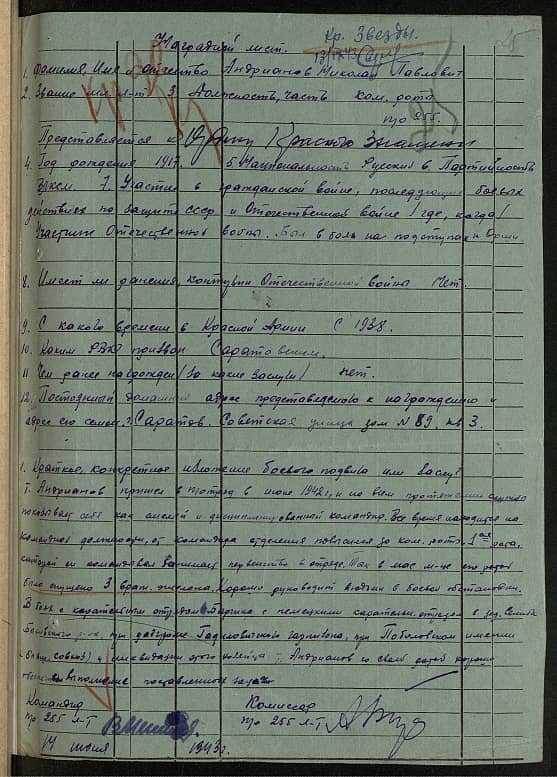 Кр. Звезды.
Наградной лист.
1. Фамилия, Имя и отчество Андрианов Николай Павлович
2. Звание мл. л-т 3 Должность, часть ком. рота
п/о 255.
Представляется к Ордену Красного Знамени
4. Год рождения 1917. 5. Национальность Русский 6. Партийность
ВЛКСМ 7. Участие в гражданской войне, последующих боевых
действиях по защите СССР и Отечественной войне /где, когда/
Участник Отечественной войны. Был в боях на подступах к Орши
8. Имеет ли ранения, контузии Отечественной войны Нет.
9. С какого времени в Красной Армии С 1938.
10. Каким РВК призван Саратовским.
11 Чем ранее награжден /за какие заслуги/ нет.
12. Постоянный домашний адрес представляемого к награждению и
адрес его семьи. г. Саратов. Советская улица дом N 89, кв 3.
1. Краткое, конкретное изложение боевого подвига или заслуг
т. Андрианов пришел в п/отряд в июне 1942 г. и на всем протяжении
показывает себя как смелый и дисциплинированный командир. Все время находится на
командной должности, от командира отделения повысился до ком. роты. 1ая рота,
которой он командовал занимает первенство в отряде. Так в мае м-це его ротой
было спущено 3 враж. эшелона. Хорошо руководит людьми в боевой обстановке.
В боях с карательным отрядом с немецкими карательн. отрядом в дер.
при разгроме гарнизона, при имении
(бывш. совхоз), ликвидации этого т. Андрианов со своей ротой хорошо
выполнение поставленных задач
Командир Комиссар
п/о 255 л-т п/о 255 л-т
14 июня 1943 г.